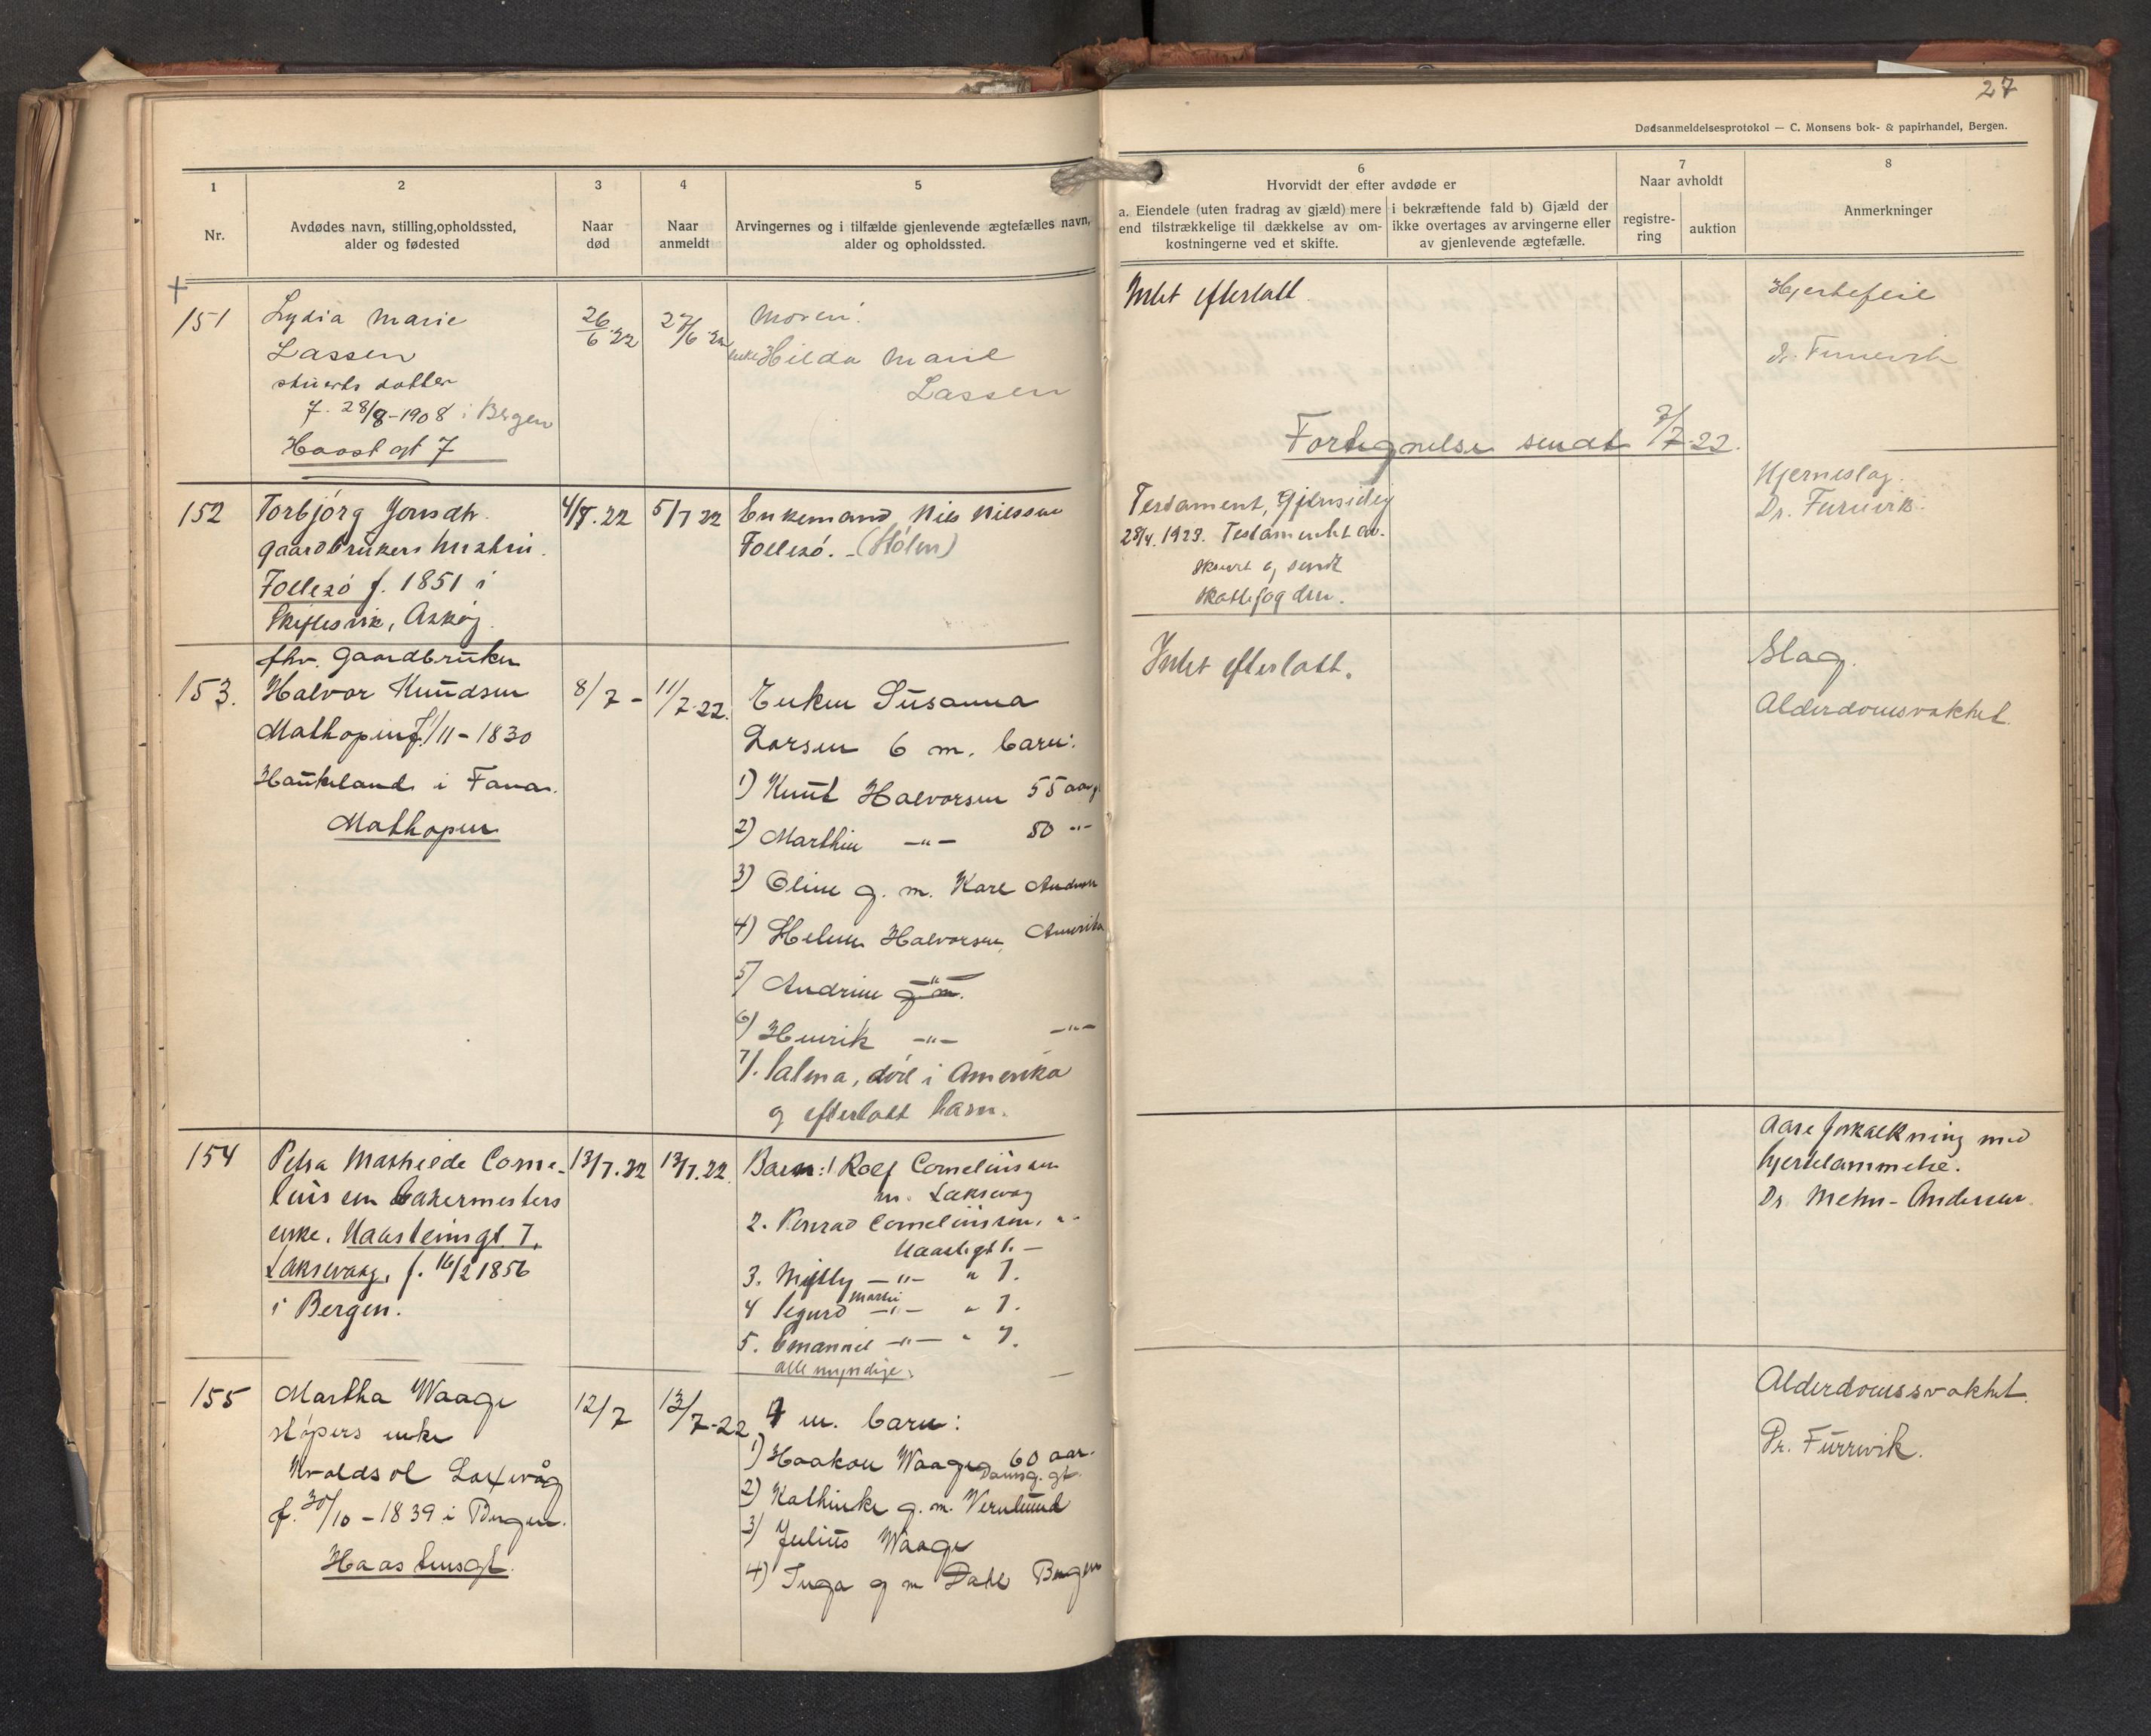 27
Dødsanmeldelsesprotokol — C. Monsens bok- & papirhandel, Bergen.
1
Nr.
2
Avdødes navn, stilling, opholdssted,
alder og fødested
3
Naar
død
4
Naar
anmeldt
5
Arvingernes og i tilfælde gjenlevende ægtefælles navn,
alder og opholdssted.
6
Hvorvidt der efter avdøde er
a. Eiendele (uten fradrag av gjæld) mere
end tilstrækkelige til dækkelse av om-
kostningerne ved et skifte.
i bekræftende fald b) Gjæld der
ikke overtages av arvingerne eller
av gjenlevende ægtefælle.
7
Naar avholdt
registre-
ring
auktion
8
Anmerkninger
151
Lydia Marie
Lassen
stuerts datter
f. 28/8-1908 i Bergen
Haast gt 7
26/6-22
27/6-22
Moren:
enke Hilda Marie
Lassen
Intet efterlatt
Fortegnelse sendt 7/7-22.
Hjertefeil
Dr. Furuvik
152
Torbjörg Jonsdtr.
gaardbrukers hustru.
Follesö f. 1851 i
Askøy.
4/7.22
5/7 22
Enkemand Nils Nilssen
Follesö. - (Hólen)
Testament, gjensidig
28/4. 1923. Testamentet av-
skrevet og sendt
skattefogden.
Hjerneslag.
Dr. Furuvik.
153.
fhv. Gaardbruker
Halvor Knudsen
Mathopen f. 1/11-1830
Haukeland i Fana.
Mathopen
8/7 -
11/7-22.
Enken Susanna
Larsen 6 m. barn:
1) Knut Halvorsen 55 aar
2) Marthin —"— 50 -"-
3) Oline g. m. Karl Andersen
4) Helene Halvorsen, Amerika
5) Andrine —"—
6) Henrik —"— —"—
7). Salma, död i Amerika
og efterlatt barn.
Intet efterlatt.
Slag.
Alderdomsvakhet.
154
Petra Mathilde Corne-
liussen bakermesters
enke. Haasteinsgt 7.
Laksevaag, f. 16/2 1856
i Bergen.
13/7.22
13/7.22.
Barn: 1 Rolf Corneliussen
m. Laksevag
2. Konrad Corneliussen, "
Haastgt 7. —
3. Milly —"— " 7.
4 Sigurd —"— " 7.
5. Emanuel —"— " 7.
alle myndige.
Aareforkalkning med
hjertelammelse.
Dr. Mehn-Andersen.
155
Martha Waage
støpers enke
Laxevåg
f. 30/10-1839 i Bergen.
Haasteinsgt.
12/7
13/7-22
4 m. barn:
1) Haakon Waage 60 aar.
Damsg. gt.
2) Kathinke g. m. Vernlund
3) Julius Waage
4) Inga g m Dahl Bergen
Alderdomssvakhet.
Dr. Furuvik.